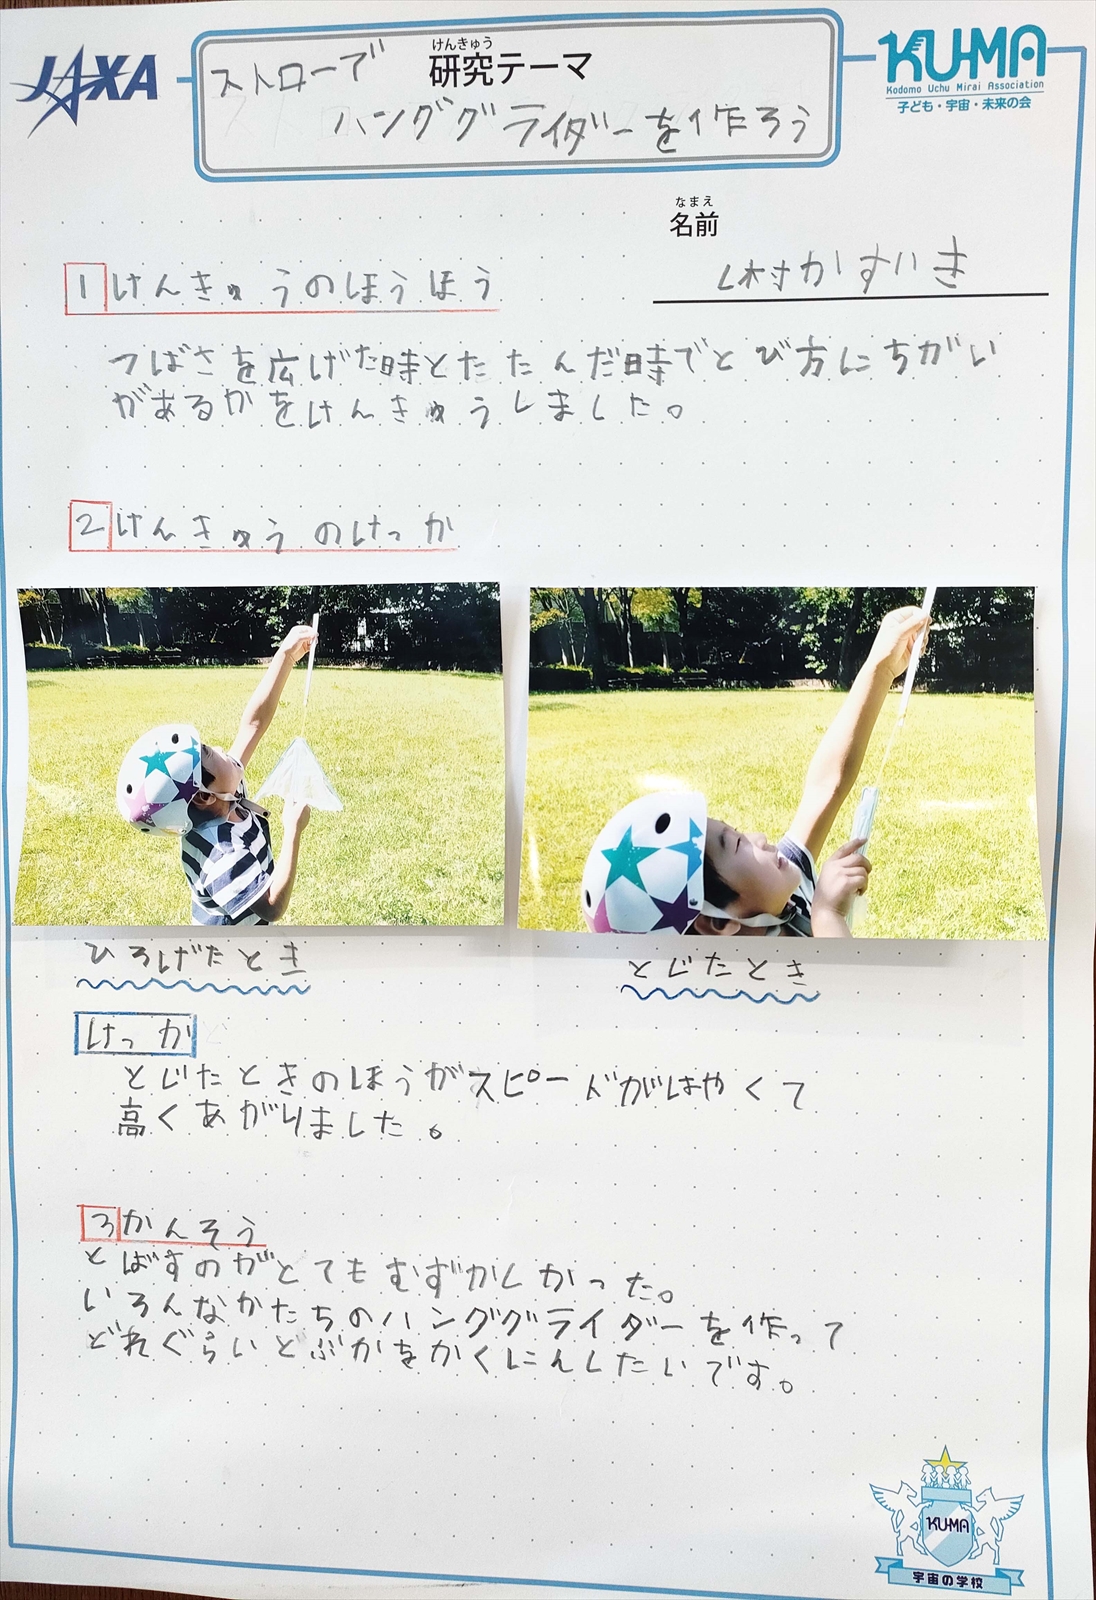 JAXA
けんきゅう
研究テーマ
ストローで
ハンググライダーを作ろう
KU-MA
Kodomo Uchu Mirai Association
子ども・宇宙・未来の会
なまえ
名前
1 けんきゅうのほうほう
つばさを広げた時とたたんだ時でとび方にちがい
があるかをけんきゅうしました。
2 けんきゅうのけっか
ひろげたとき
とじたとき
けっか
とじたときのほうがスピードがはやくて
高くあがりました。
3 かんそう
とばすのがとてもむずかしかった。
いろんなかたちのハンググライダーを作って
どれぐらいとぶかをかくにんしたいです。
KU-MA
宇宙の学校